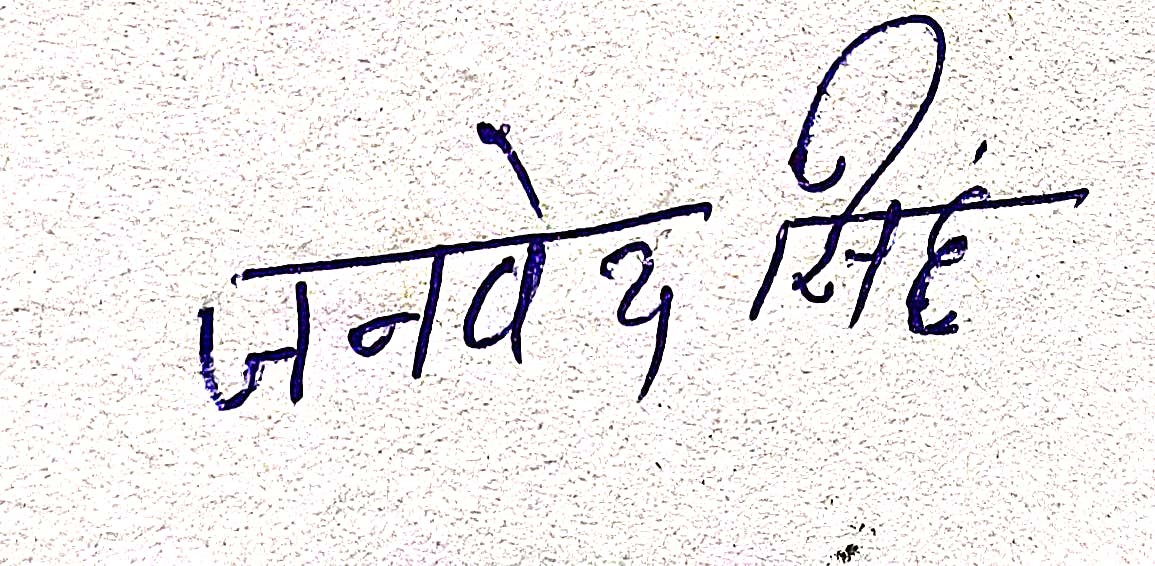 जनवेद सिहं